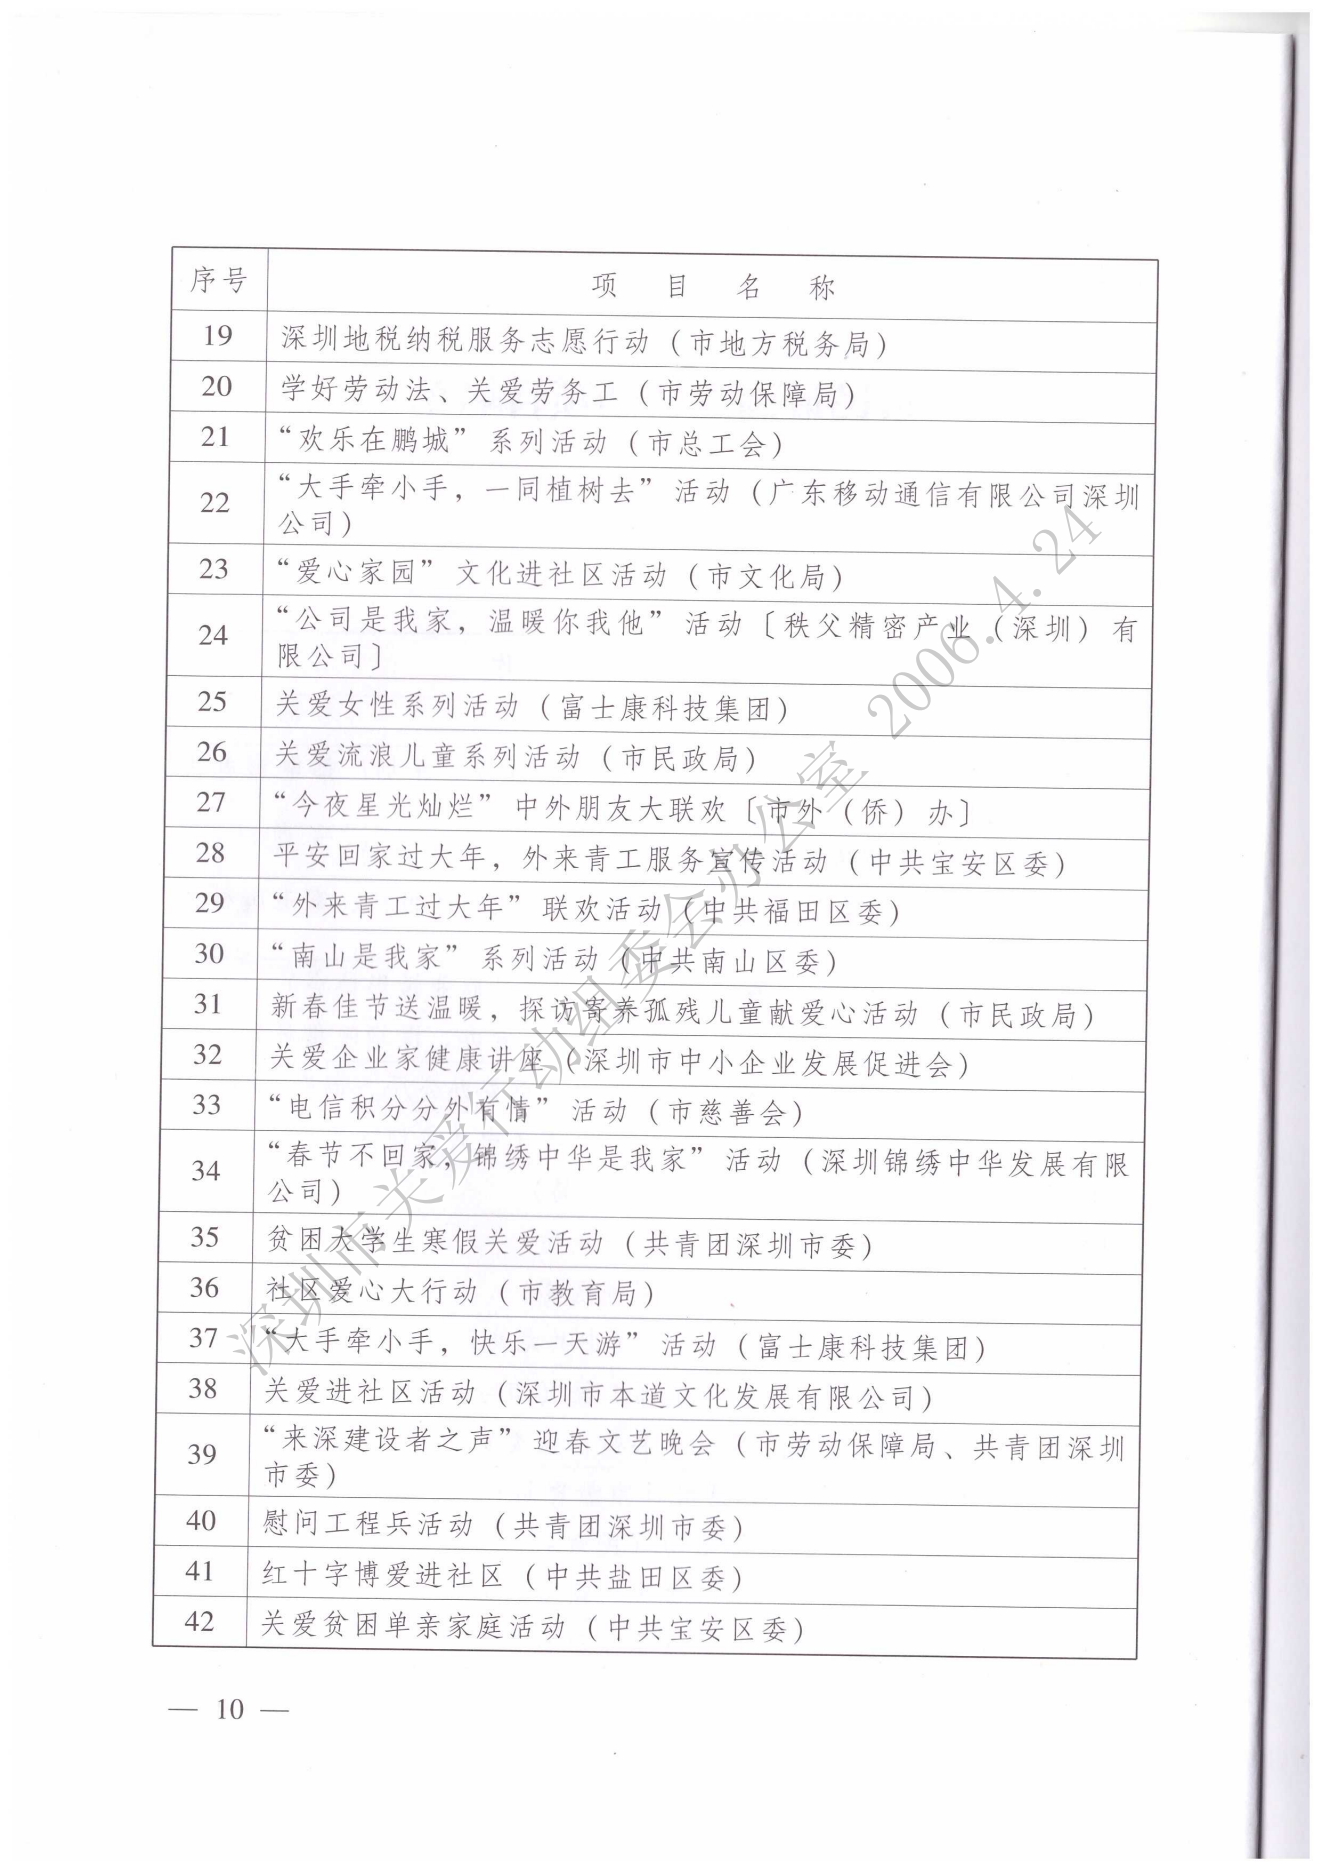 序号 项 目 名 称
19 深圳地税纳税服务志愿行动（市地方税务局）
20 学好劳动法、关爱劳务工（市劳动保障局）
21 “欢乐在鹏城”系列活动（市总工会）
22 “大手牵小手，一同植树去”活动（广东移动通信有限公司深圳
公司）
23 “爱心家园”文化进社区活动（市文化局）
24 “公司是我家，温暖你我他”活动〔秩父精密产业（深圳）有
限公司〕
25 关爱女性系列活动（富士康科技集团）
26 关爱流浪儿童系列活动（市民政局）
27 “今夜星光灿烂”中外朋友大联欢〔市外（侨）办〕
28 平安回家过大年，外来青工服务宣传活动（中共宝安区委）
29 “外来青工过大年”联欢活动（中共福田区委）
30 “南山是我家”系列活动（中共南山区委）
31 新春佳节送温暖，探访寄养孤残儿童献爱心活动（市民政局）
32 关爱企业家健康讲座（深圳市中小企业发展促进会）
33 “电信积分分外有情”活动（市慈善会）
34 “春节不回家，锦绣中华是我家”活动（深圳锦绣中华发展有限
公司）
35 贫困大学生寒假关爱活动（共青团深圳市委）
36 社区爱心大行动（市教育局）
37 “大手牵小手，快乐一天游”活动（富士康科技集团）
38 关爱进社区活动（深圳市本道文化发展有限公司）
39 “来深建设者之声”迎春文艺晚会（市劳动保障局、共青团深圳
市委）
40 慰问工程兵活动（共青团深圳市委）
41 红十字博爱进社区（中共盐田区委）
42 关爱贫困单亲家庭活动（中共宝安区委）
— 10 —
深圳市关爱行动组委会办公室 2006.4.24